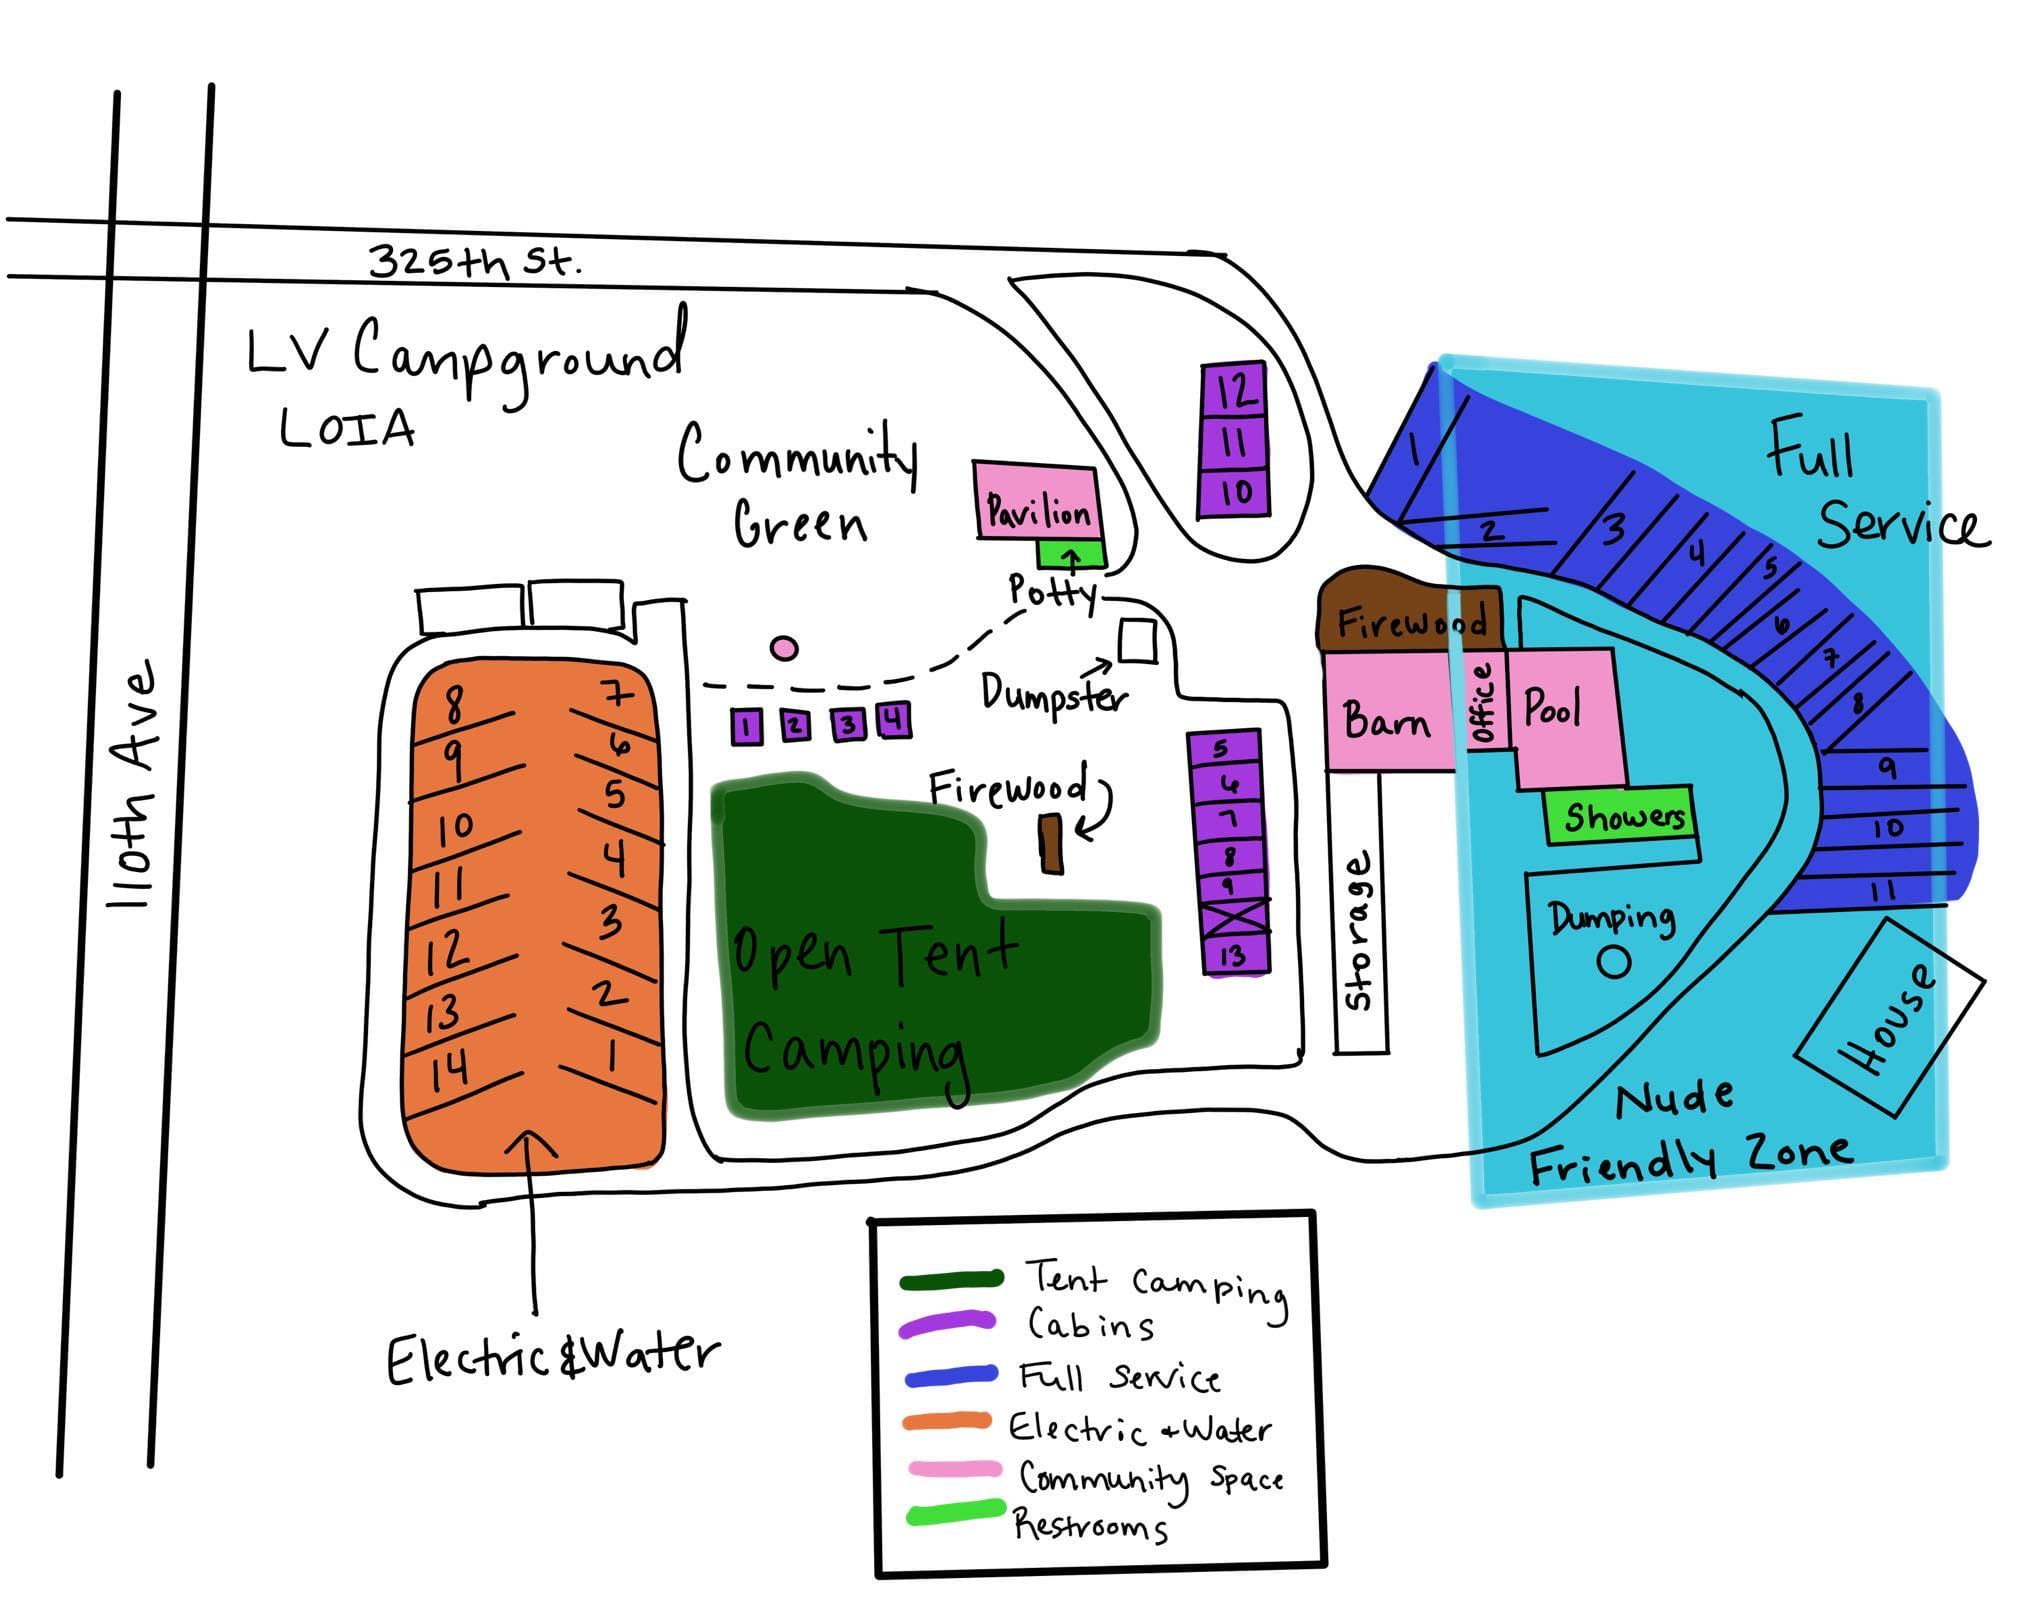 325th St.
LV Campground
LOIA
110th Ave
Community
Green
Pavilion
Potty
12
11
10
Full
Service
1
2
3
4
5
6
7
8
9
10
11
Firewood
Barn
Office
Pool
Showers
Dumping
Storage
House
Nude
Friendly Zone
Dumpster
1
2
3
4
Firewood
5
6
7
8
9
13
Open Tent
Camping
8
9
10
11
12
13
14
7
6
5
4
3
2
1
Electric & Water
Tent Camping
Cabins
Full Service
Electric + Water
Community Space
Restrooms